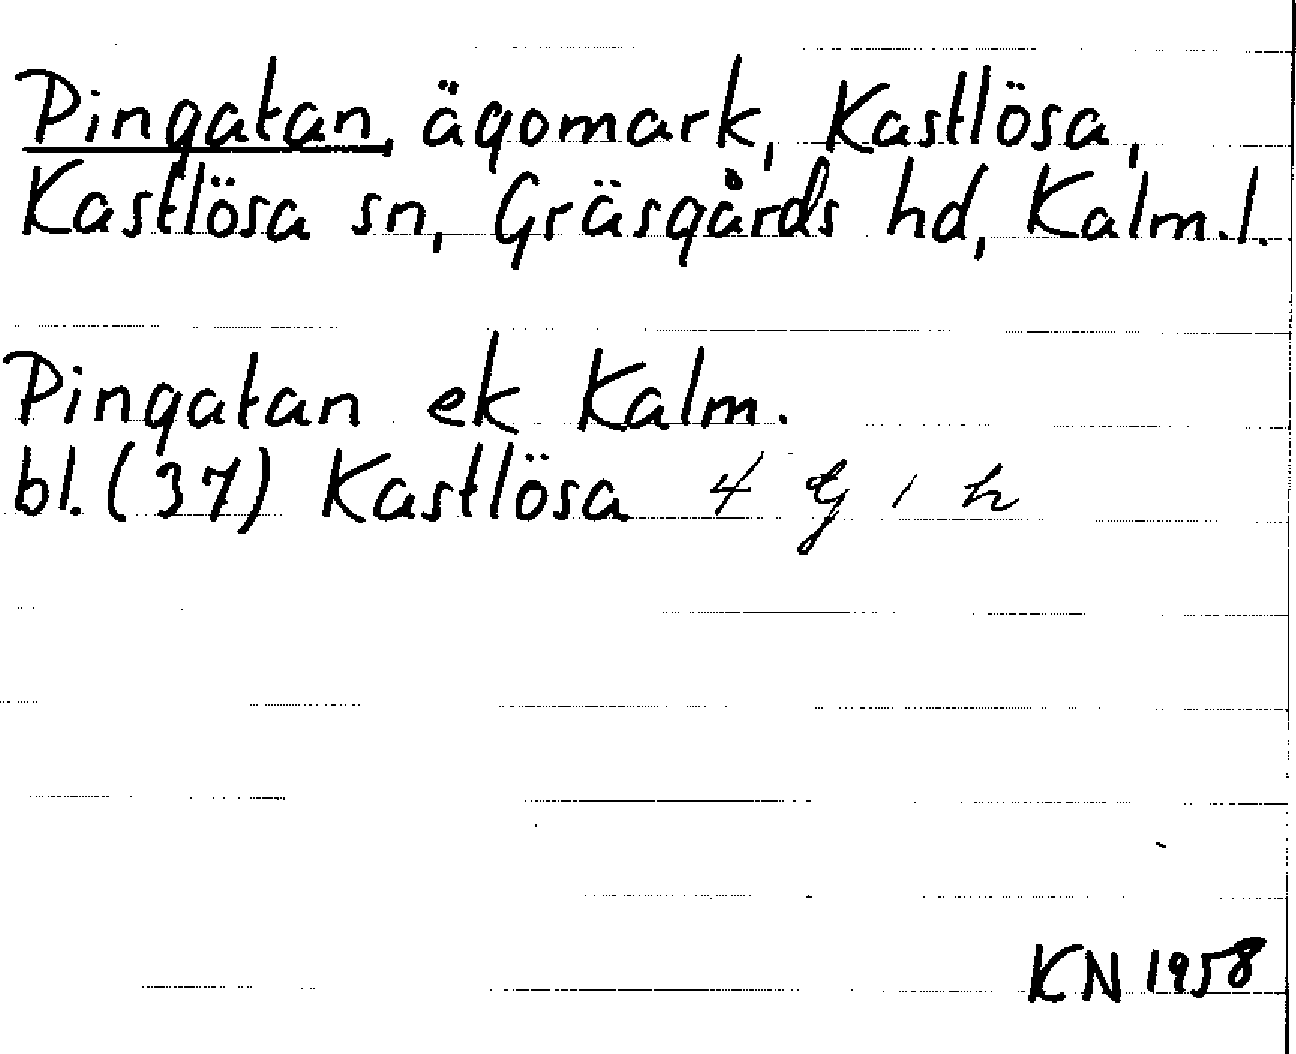 Pingatan, ägomark, Kastlösa,
Kastlösa sn, Gräsgårds hd, Kalm.l.
Pingatan ek Kalm.
bl. (37) Kastlösa 4 G 1 h
KN 1958